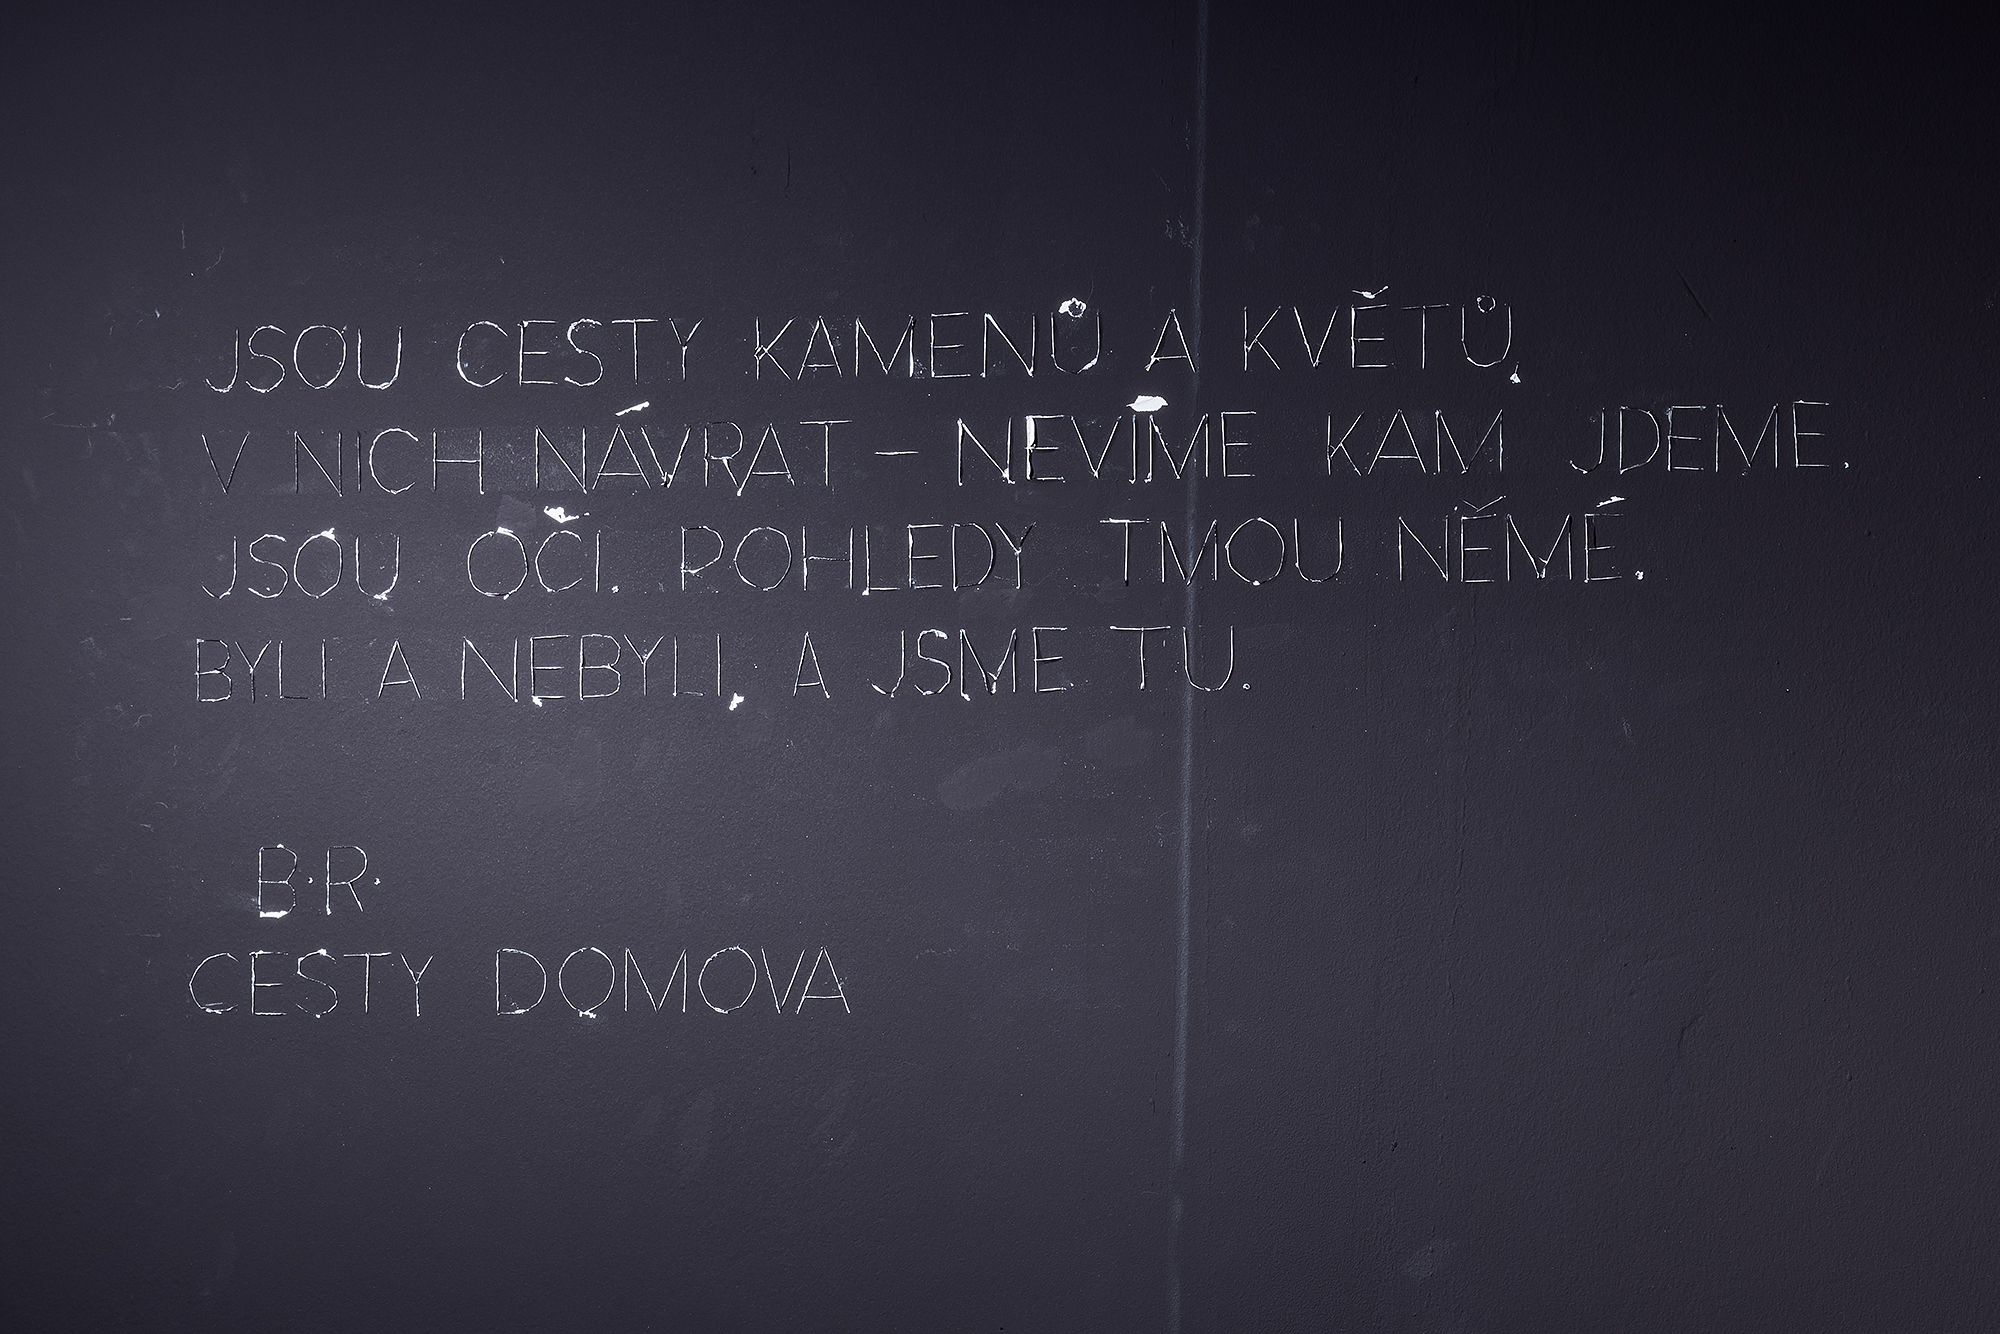 JSOU CESTY KAMENŮ A KVĚTŮ,
V NICH NÁVRAT – NEVÍME KAM JDEME.
JSOU OČI. POHLEDY TMOU NĚMÉ.
BYLI A NEBYLI, A JSME TU.
B·R·
CESTY DOMOVA